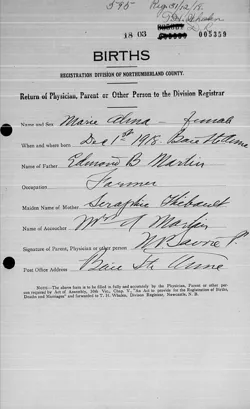 595 Reg 31/12/18
18 03 005359
BIRTHS
REGISTRATION DIVISION OF NORTHUMBERLAND COUNTY.
Return of Physician, Parent or Other Person to the Division Registrar
Name and Sex Marie Alma - female
When and where born Dec 1st 1918. Baie Ste Anne
Name of Father Edmond B Martin
Occupation Farmer
Maiden Name of Mother Seraphie Thibault
Name of Accoucher Mrs A Martin
Signature of Parent, Physician or other person M R Savoie P.
Post Office Address Baie Ste Anne
NOTE:—The above form is to be filled in fully and accurately by the Physician, Parent or other person required by Act of Assembly, "An Act to provide for the Registration of Births, Deaths and Marriages" and forwarded to T. H. Whalen, Division Registrar, Newcastle, N. B.